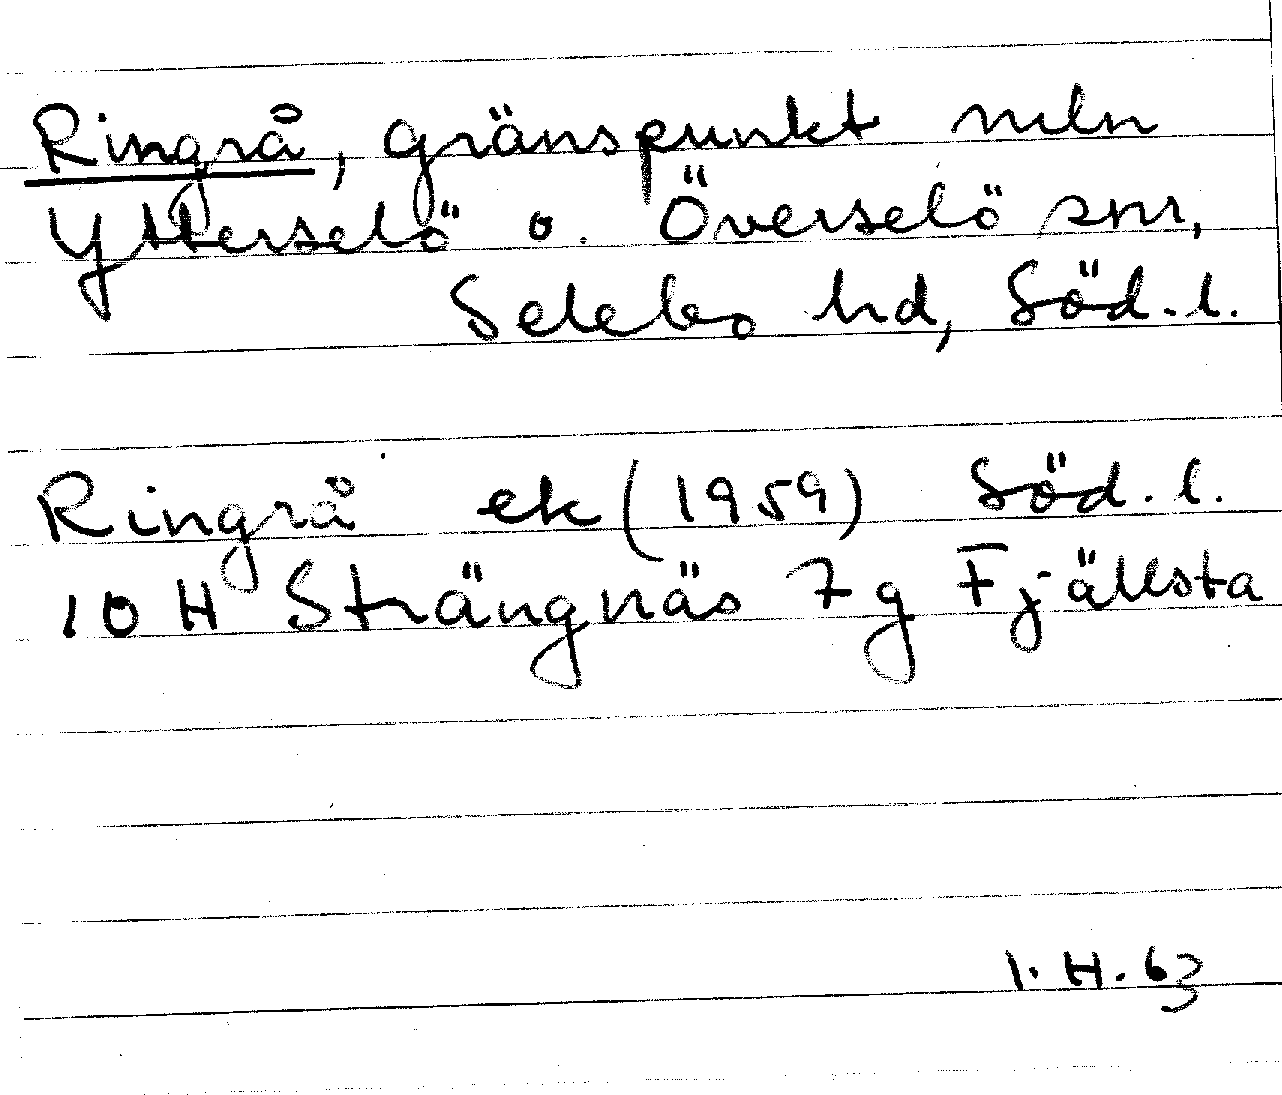 Ringrå, gränspunkt mln
Ytterselö o. Överselö snr,
Selebo hd, Söd.l.
Ringrå ek (1959) Söd.l.
10 H Strängnäs 7g Fjällsta
I.H.63